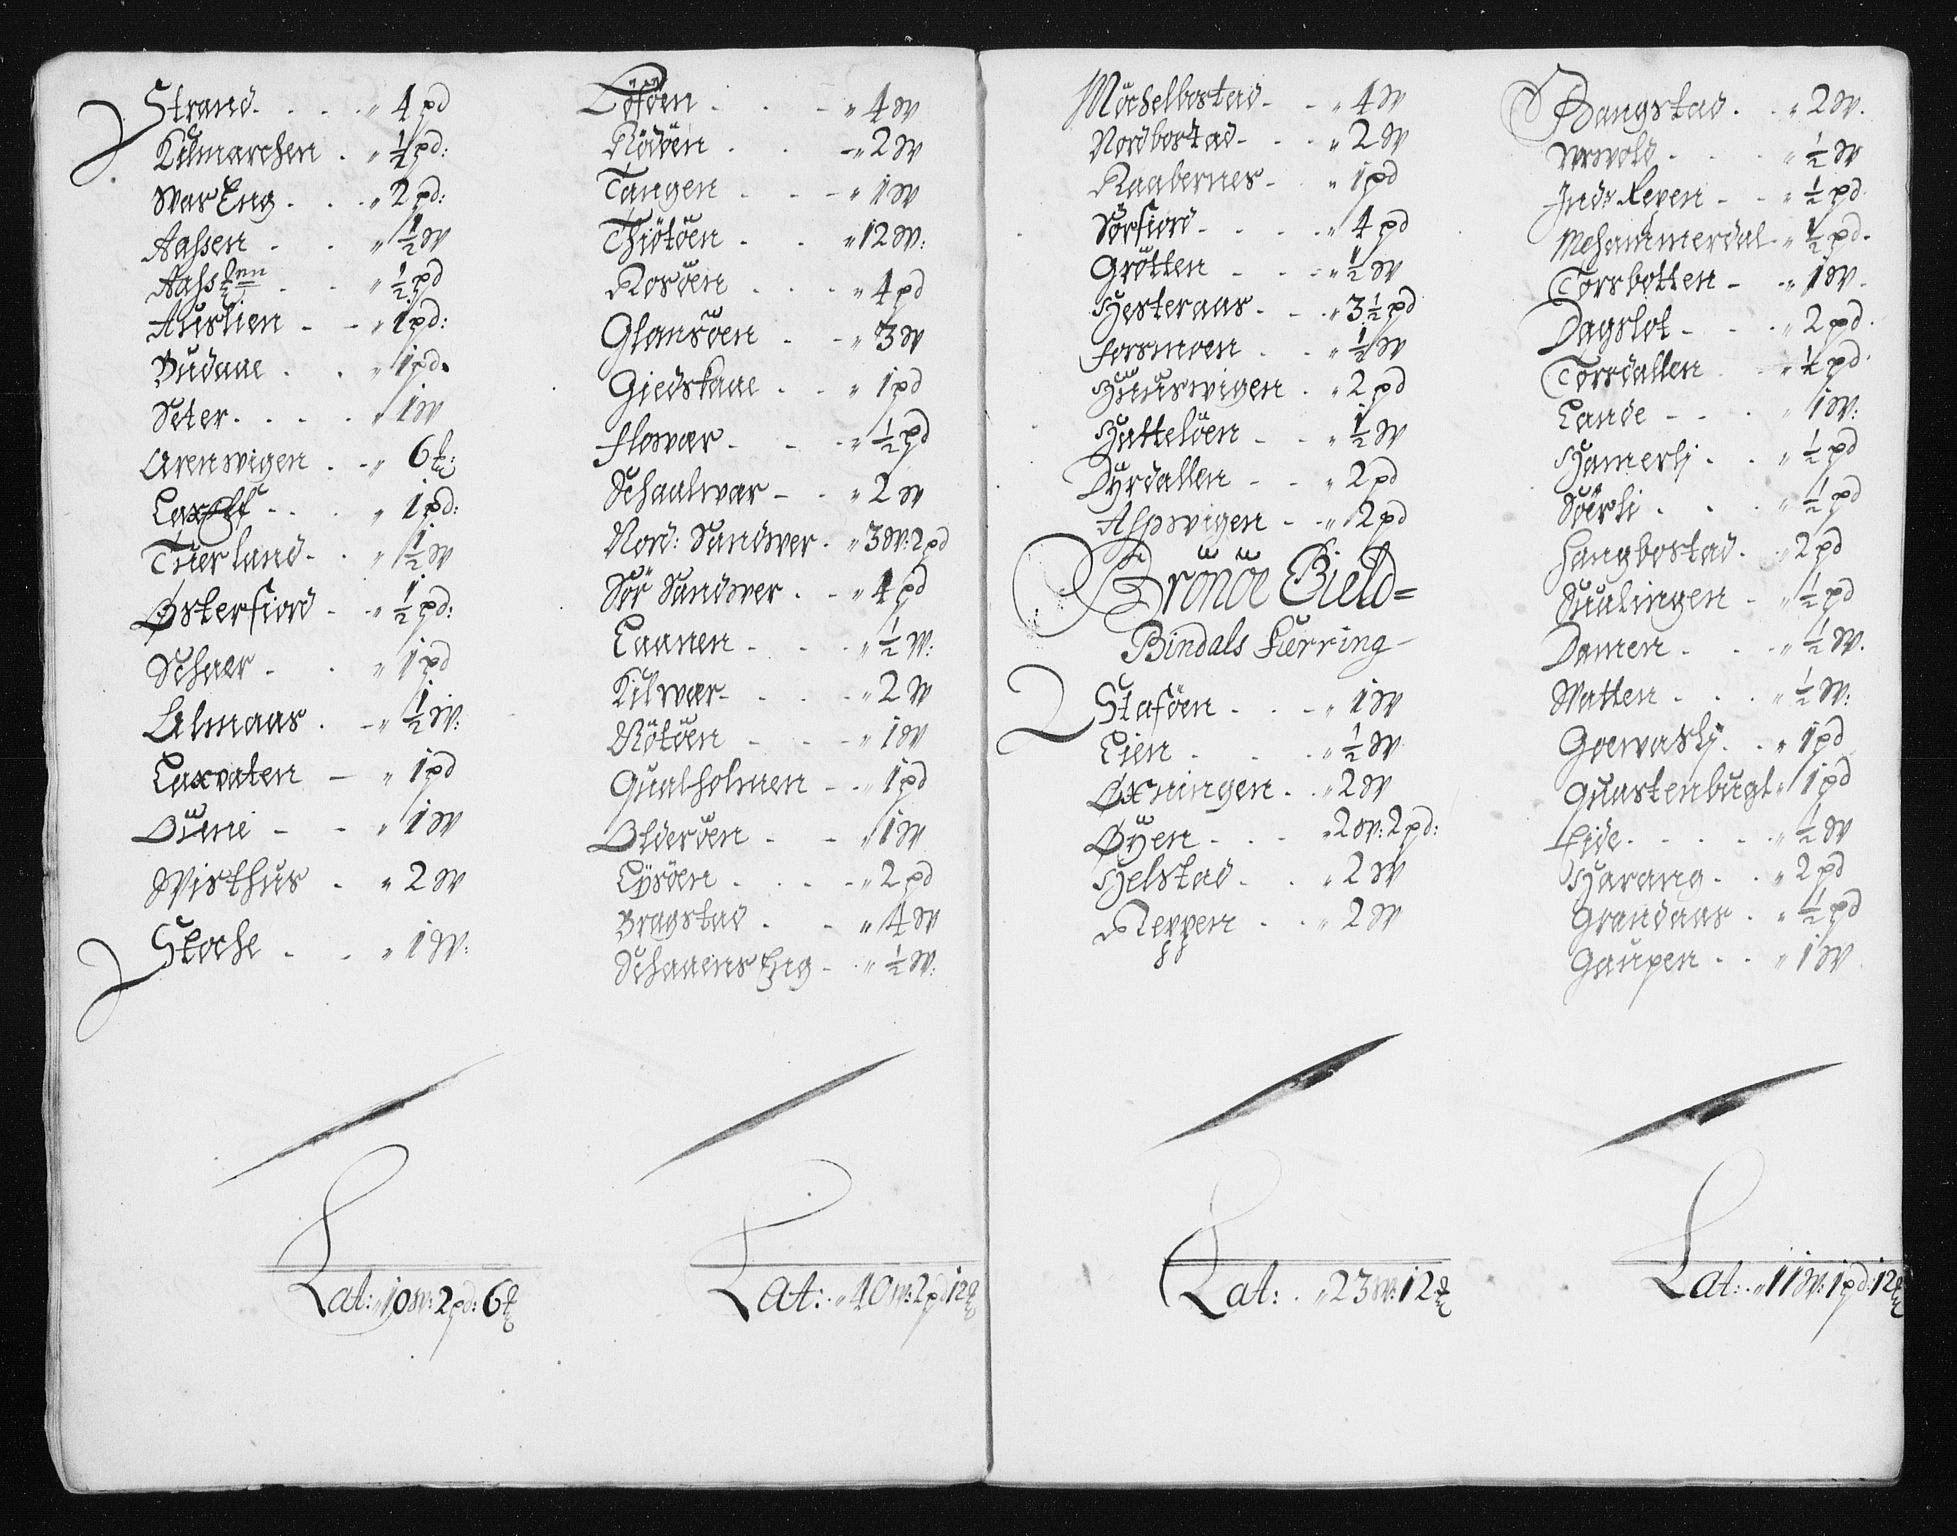 Strand . . . . „ 4 pd
Kilmarchen . „ ½ pd:
War Eng . . . „ 2 pd:
Aahsen . . „ ½ W
Aahs den . . „ ½ pd
Auslien – – „ 1 pd:
Budaae . . „ 1 pd.
Seter . . . . „ 1 W
Arenwigen . – „ 6
Laxff . . . „ 1 pd:
Tuerland . . „ ½ W
Østerfiord – . „ ½ pd:
Schaer – . „ 1 pd
Almaas . – „ ½ W:
Laxvaten – „ 1 pd
Oüene – – „ 1 W
Wisthus . „ 2 W
Stoche . . „ 1 W:
Lat: „ 10 W: 2 pd: 6
Töföen . . – „ 4 W
Rödöen . . – „ 2 W
Tangen . . – „ 1 W
Thiötöen . . „ 12 W:
Rosöen . . . „ 4 pd
Glansöen . – „ 3 W
Giedskaae . . „ 1 pd
Flowær . . – „ ½ pd
Schaalwær – . „ 2 W
Nord: Sandwer . „ 3 W: 2 pd
Sör Sandwer . – „ 4 pd
Laanen . . . „ ½ W:
Kilwær . . . – „ 2 W
Rötöen – – – „ 1 W
Qualholmen – – „ 1 pd
Olderöen . – „ 1 W
Lÿsöen . . . – „ 2 pd
Bragstad . – „ 4 W
Schaaens Eng – . „ ½ W:
Lat: „ 40 W: 2 pd 12
Möchelbostad – – „ 4 W
Nordbostad – . . „ 2 W
Raabernes – „ 1 pd
Sörfiord . . . „ 4 pd
Grötten – . – „ ½ W
Hesteraas . . . „ 3 ½ pd
Forsmoen . . „ ½ W
Huuswigen . „ 2 pd
Hatteløen – . „ ½ W
Dÿrdallen – – „ 2 pd
Alhswigen – . „ 2 pd
Brönöe Gield=
Bindals Fierring –
Staföen . . – „ 1 W
Lien . . . . „ ½ W
Øxningen . . „ 2 W
Øyen . . . „ 2 W: 2 pd:
Helstad . . „ 2 W
Reppen . . „ 2 W
Lat: . „ 23 W: 12
Bangstad . . „ 2 W.
Urwold . . . „ ½ W
Indr Reven – . „ ½ pd
Mehammerdal „ ½ pd.
Torsbotten – „ 1 W.
Dagslot . . . „ 2 pd.
Torsdallen . . „ ½ pd.
Lande – . . „ 1 W:
Hamerlj . . „ ½ pd
Söerli . . . „ ½ pd
Hangbostad . „ 2 pd
Suulingen . „ ½ pd
Damen . . . „ ½ W.
Watten . . . „ ½ W:
Goewaslj . . „ 1 pd
Quastenbugt „ 1 pd
Eide . . . . „ ½ W
Harang . . „ 2 pd
Grandaas . „ ½ pd
Gaupen . . „ 1 W
Lat: . „ 11 W: 1 pd 12